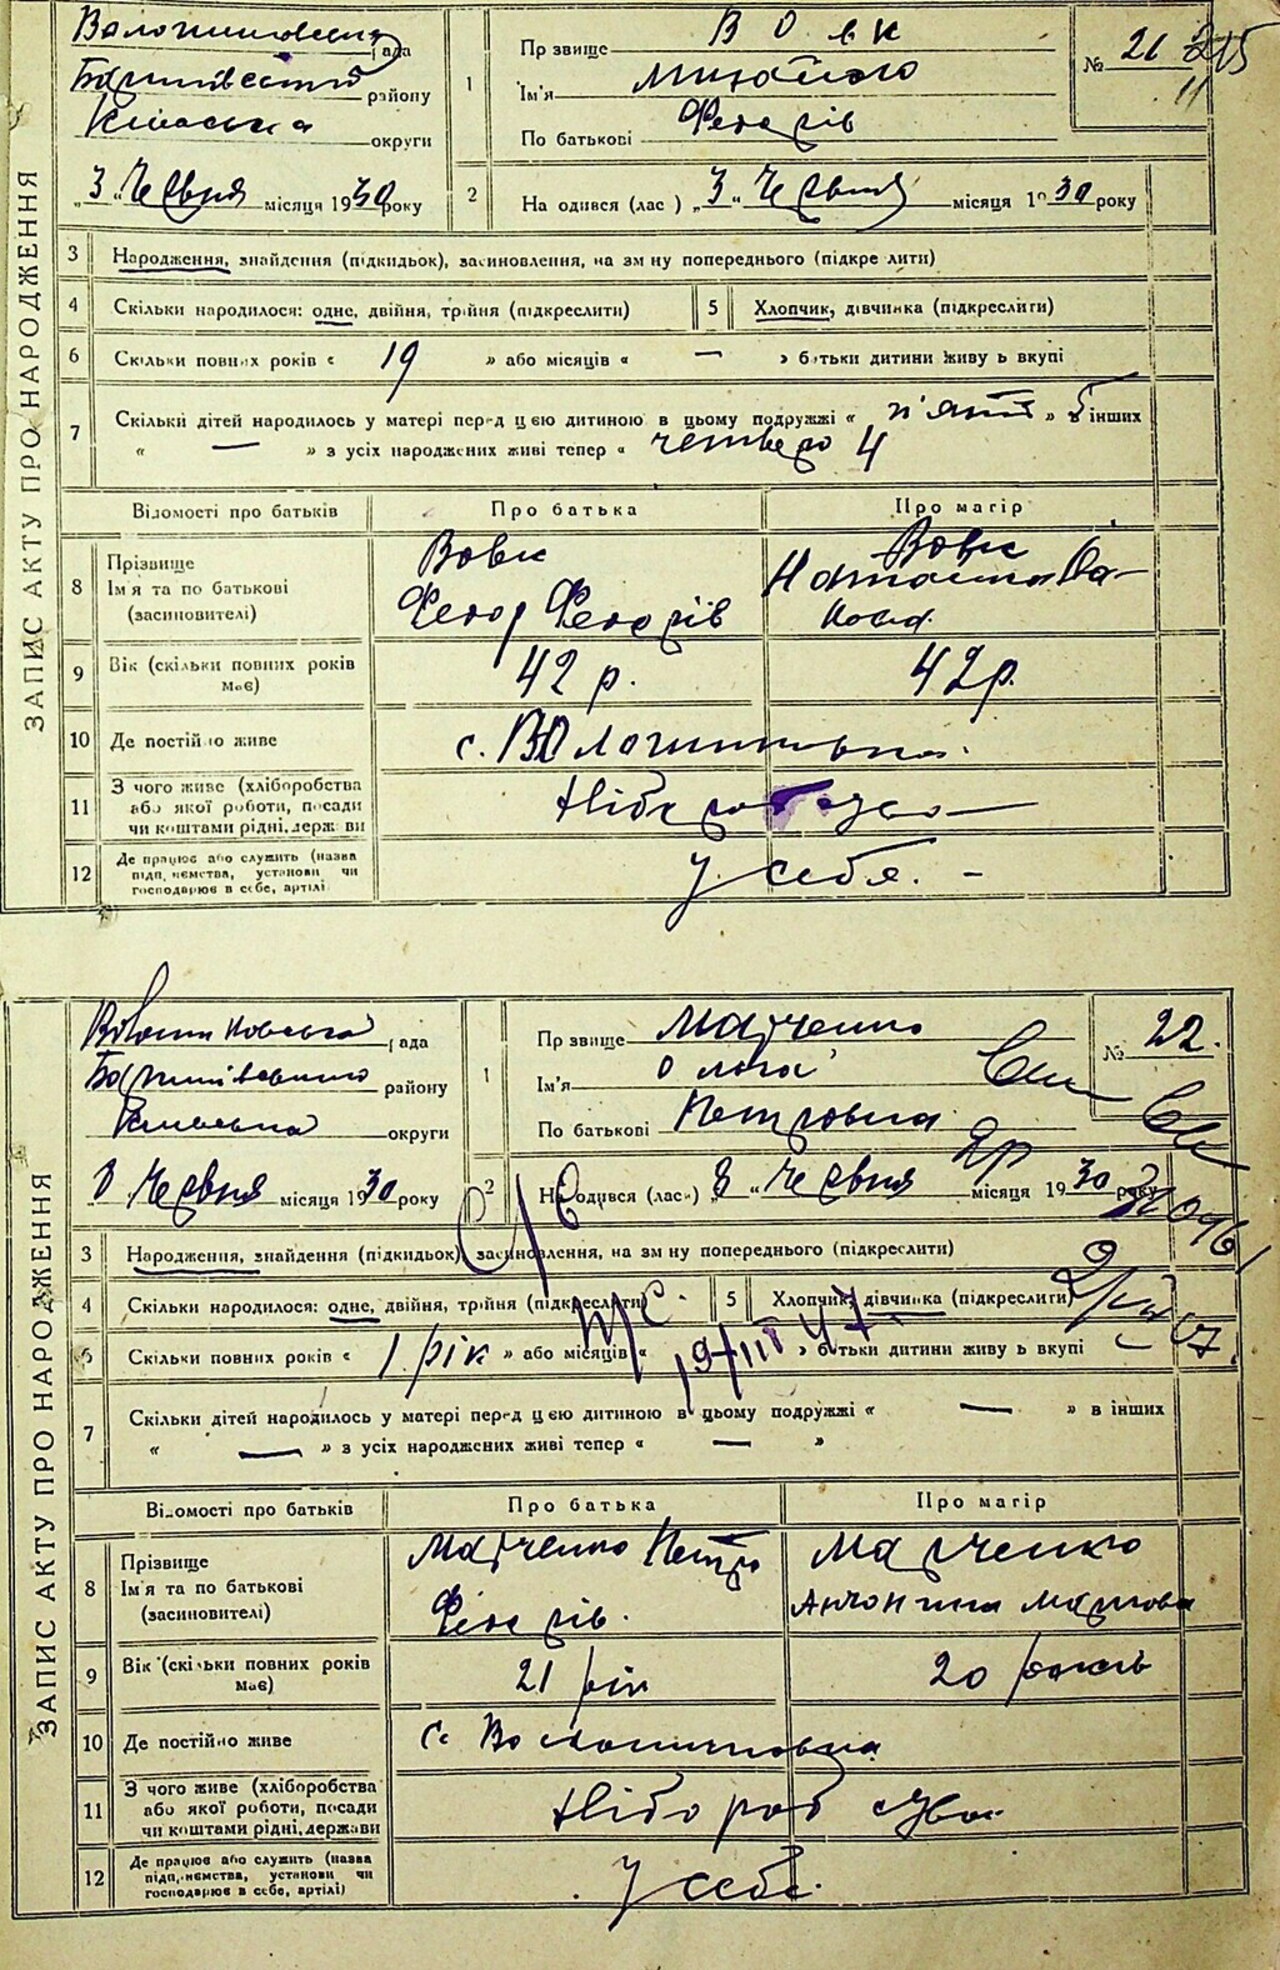 ЗАПИС АКТУ ПРО НАРОДЖЕННЯ
Волошиновська рада
Баришівського району
Київська округи
„3“ Червня місяця 1930 року
1
Пр звище Вовк
Ім'я Михайло
По батькові Федорів
№ 21 215
11
2 На одився (лас ) „3“ Червня місяця 1930 року
3 Народження, знайдення (підкидьок), засиновлення, на зм ну попереднього (підкре лити)
4 Скільки народилося: одне, двійня, трійня (підкреслити) 5 Хлопчик, дівчинка (підкреслити)
6 Скільки повних років « 19 » або місяців « — » батьки дитини живу ь вкупі
7 Скільки дітей народилось у матері перед цією дитиною в цьому подружжі « п'ять » 5 інших
« — » з усіх народжених живі тепер « четверо 4
Відомості про батьків Про батька Про матір
8 Прізвище
Ім'я та по батькові
(засиновителі)
Вовк
Федор Федорів
Вовк
9 Вік (скільки повних років має) 42 р. 42 р.
10 Де постійно живе с. Волошинівка
11 З чого живе (хліборобства
або якої роботи, посади
чи коштами рідні, держави
Хліборобство
12 Де працює або служить (назва
підп иємства, установи чи
господарює в себе, артілі
У себя. -
ЗАПИС АКТУ ПРО НАРОДЖЕННЯ
Волошиновська рада
Баришівського району
Київська округи
„8 Червня місяця 1930 року
1
Пр звище Марченко
Ім'я Ольга
По батькові Петровна
№ 22.
2 На одився (лась) „8“ Червня місяця 1930 року
3 Народження, знайдення (підкидьок), засиновлення, на зм ну попереднього (підкреслити)
4 Скільки народилося: одне, двійня, трійня (підкреслити) 5 Хлопчик, дівчинка (підкреслити)
6 Скільки повних років « 1 рік » або місяців « » батьки дитини живу ь вкупі
19/III 47
7 Скільки дітей народилось у матері перед цією дитиною в цьому подружжі « — » в інших
« — » з усіх народжених живі тепер « — »
Відомості про батьків Про батька Про матір
8 Прізвище
Ім'я та по батькові
(засиновителі)
Марченко Петро
Федорів.
Марченко
Антонина Маркова
9 Вік (скільки повних років має) 21 рік 20 років
10 Де постійно живе с. Волошиновка
11 З чого живе (хліборобства
або якої роботи, посади
чи коштами рідні, держави
Хліборобство
12 Де працює або служить (назва
підп иємства, установи чи
господарює в себе, артілі)
У себе.